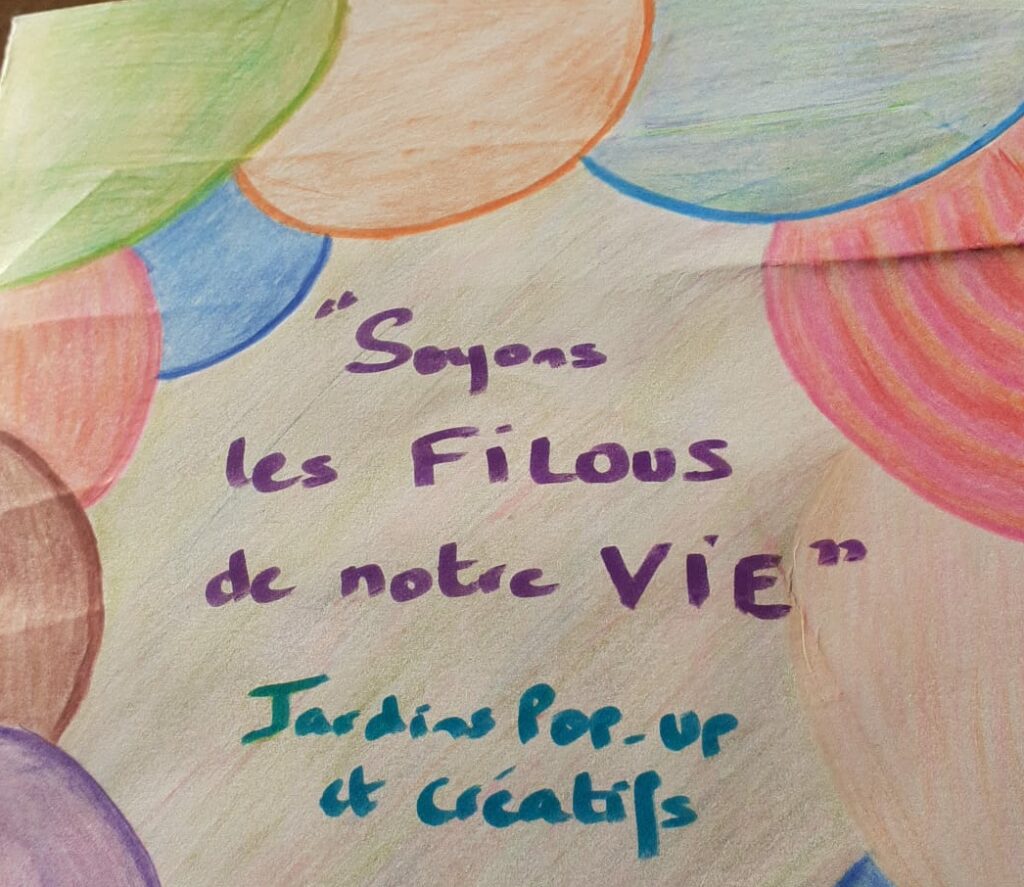 "Soyons
les FiLOUS
de notre ViE"
Jardins Pop-up
et créatifs